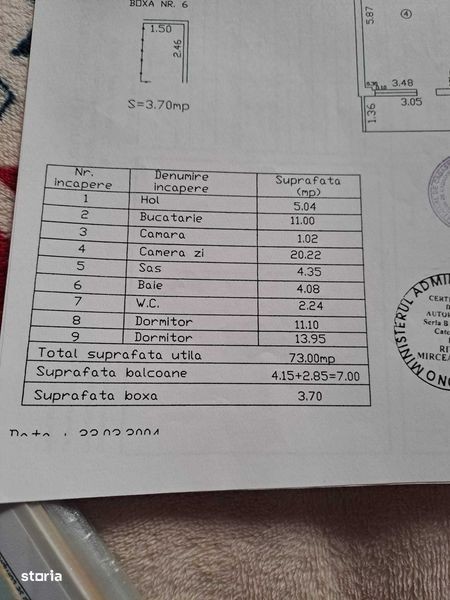 BOXA NR. 6
1.50
2.46
S=3.70mp
5.87
4
3.48
3.05
1.36
Nr. incapere Denumire incapere Suprafata (mp)
1 Hol 5.04
2 Bucatarie 11.00
3 Camara 1.02
4 Camera zi 20.22
5 Sas 4.35
6 Baie 4.08
7 W.C. 2.24
8 Dormitor 11.10
9 Dormitor 13.95
Total suprafata utila 73.00mp
Suprafata balcoane 4.15+2.85=7.00
Suprafata boxa 3.70
MINISTERUL ADMI
CERTI
AUTOR
Seria B
Cate
MIRCEA
storia